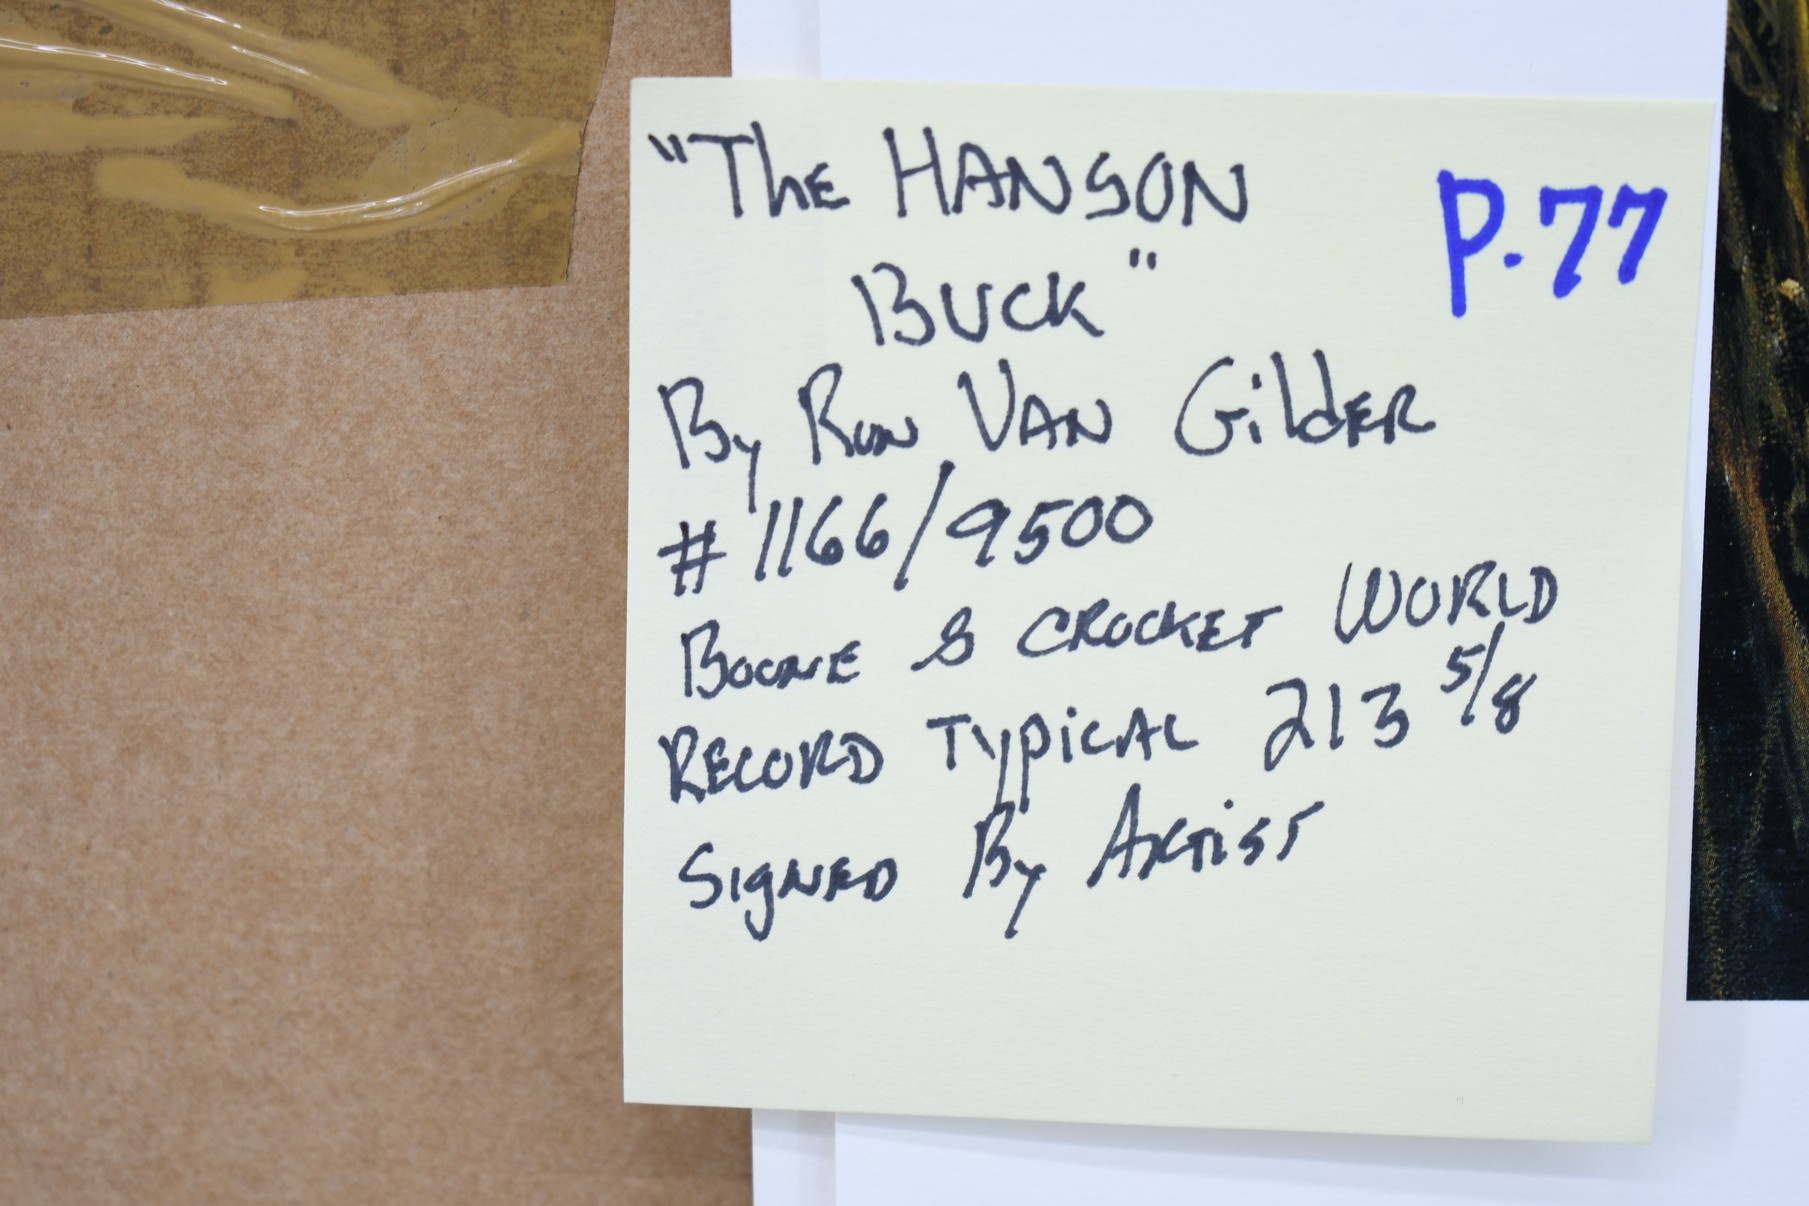 "The HANSON
BUCK"
P.77
By RON VAN GilDER
# 1166/9500
BOONE & CROCKET WORLD
RECORD TypiCAL 213 5/8
SigNED By ARTiST